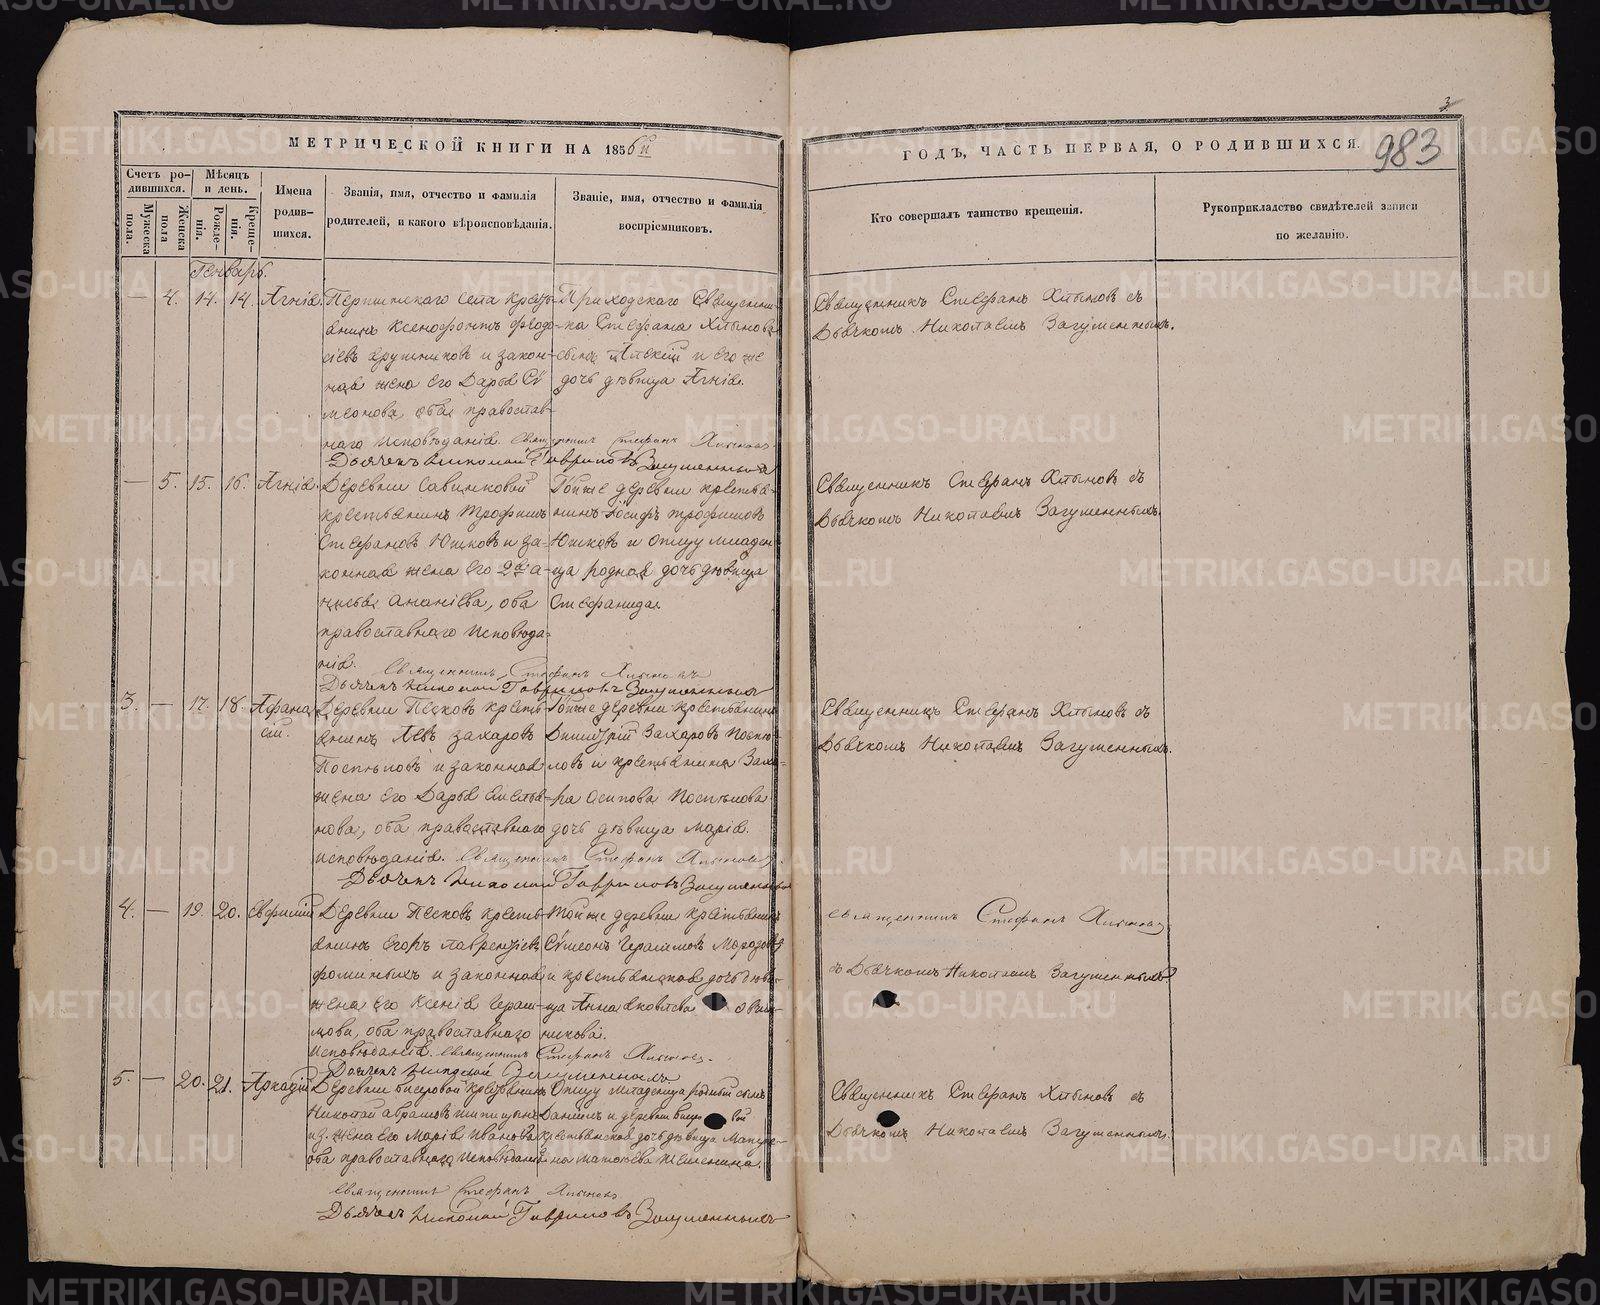 МЕТРИЧЕСКОЙ КНИГИ НА 1856й
ГОДЪ, ЧАСТЬ ПЕРВАЯ, О РОДИВШИХСЯ.
983
3
Счетъ родившихся.
Мужеска пола.
Женска пола
Мѣсяцъ и день.
Рожденія.
Крещенія.
Имена родившихся.
Званія, имя, отчество и фамилія
родителей, и какого вѣроисповѣданія.
Званіе, имя, отчество и фамилія
воспріемниковъ.
Кто совершалъ таинство крещенія.
Рукоприкладство свидѣтелей записи
по желанію.
Генварь.
— 4. 14. 14. Агнія.
села кресть-
янинъ Ксенофонтъ Ѳеодо-
сіевъ и закон-
ная жена его Дарья Сѵ-
меонова, оба православ-
наго исповѣданія. Священникъ Стефанъ Хлыновъ
Дьячекъ Николай Гавриловъ Загуменныхъ
Приходскаго Священни-
ка Стефана Хлынова
сынъ Алексій и его же
дочь дѣвица Агнія.
Священникъ Стефанъ Хлыновъ съ
Дьячкомъ Николаемъ Загуменнымъ.
— 5. 15. 16. Агнія.
Деревни Савинковой
крестьянинъ Трофимъ
Стефановъ Южковъ и за-
конная жена его 2я
Ананіева, оба
православнаго исповѣда-
нія. Священникъ Стефанъ Хлыновъ
Дьячекъ Николай Гавриловъ Загуменныхъ
Той же деревни крестья-
нинъ Іосифъ Трофимовъ
Южковъ и отцу младен-
ца родная дочь дѣвица
Стефанида.
Священникъ Стефанъ Хлыновъ съ
Дьячкомъ Николаемъ Загуменнымъ.
3. — 17. 18. Афана
сій.
Деревни Песковъ кресть-
янинъ Левъ Захаровъ
Поспѣловъ и законная
жена его Дарья Емелья-
нова, оба православнаго
исповѣданія. Священникъ Стефанъ Хлыновъ
Дьячекъ Николай Гавриловъ Загуменныхъ
Той же деревни крестьянинъ
Димитрій Захаровъ Поспѣ-
ловъ и крестьянина Заха-
ра Осипова Поспѣлова
дочь дѣвица Марія.
Священникъ Стефанъ Хлыновъ съ
Дьячкомъ Николаемъ Загуменнымъ.
4. — 19. 20. Евфимій
Деревни Песковъ кресть-
янинъ Егоръ Лаврентіевъ
Фоминыхъ и законная
жена его Ксенія Гераси-
мова, оба православнаго
исповѣданія. Священникъ Стефанъ Хлыновъ.
Дьячекъ Николай Загуменныхъ
Той же деревни крестьянинъ
Сѵмеонъ Герасимовъ Морозовъ
и крестьянская дочь дѣви-
ца Анна Яковлева
Священникъ Стефанъ Хлыновъ
съ Дьячкомъ Николаемъ Загуменнымъ
5. — 20. 21. Аркадій
Деревни Бисеровой крестьянинъ
Николай Аврамовъ Шипицынъ
и з. жена его Марія Иванова,
оба православнаго исповѣданія
Священникъ Стефанъ Хлыновъ
Дьячекъ Николай Гавриловъ Загуменныхъ
Отцу младенца родный сынъ
Даниилъ и деревни
крестьянская дочь дѣвица
Священникъ Стефанъ Хлыновъ съ
Дьячкомъ Николаемъ Загуменнымъ.
METRIKI.GASO-URAL.RU